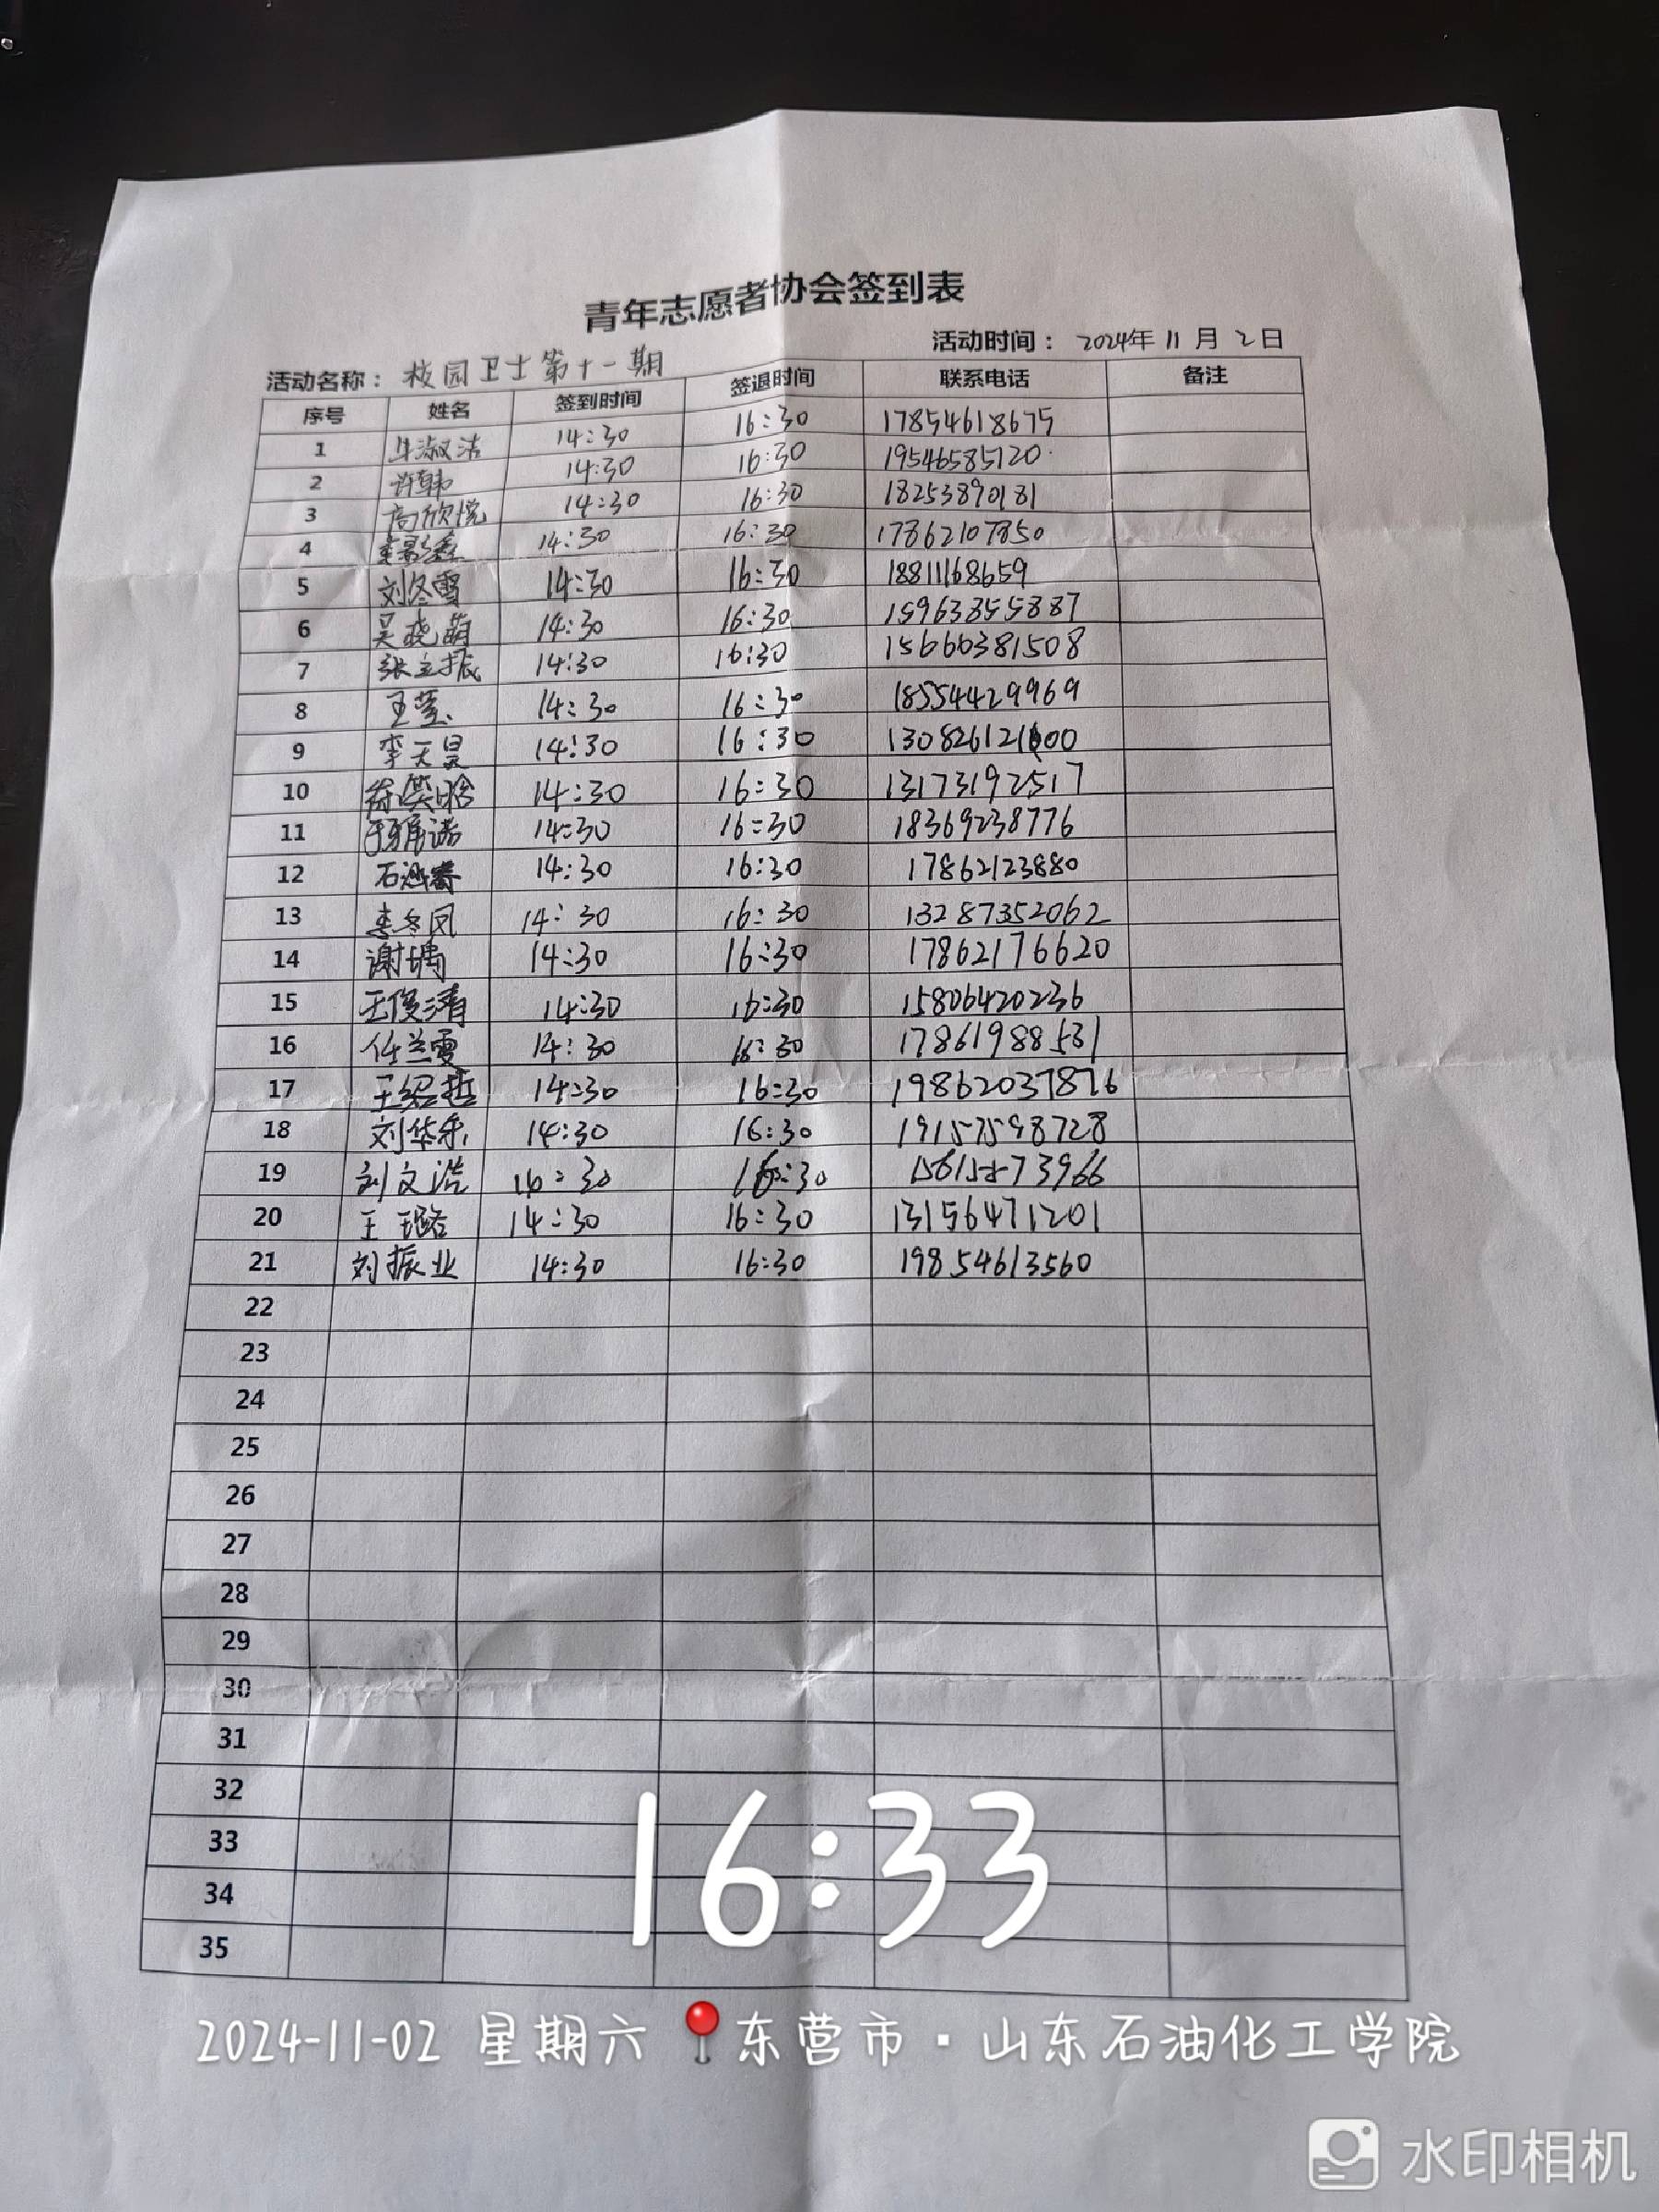 青年志愿者协会签到表
活动名称：校园卫士第十一期 活动时间：2024年11月2日
序号 姓名 签到时间 签退时间 联系电话 备注
1 牛淑洁 14:30 16:30 17854618675
2 许韩 14:30 16:30 19546585120
3 高欣悦 14:30 16:30 18253890181
4 14:30 16:30 17862107850
5 刘冬雪 14:30 16:30 18811168659
6 吴晓萌 14:30 16:30 15963855887
7 张立振 14:30 16:30 15666381508
8 王莹 14:30 16:30 18554429969
9 李天昊 14:30 16:30
10 14:30 16:30 13173192517
11 于雅诺 14:30 16:30 18369238776
12 14:30 16:30 17862123880
13 李冬凤 14:30 16:30 13287352062
14 14:30 16:30 17862176620
15 王俊清 14:30 16:30 15806420236
16 任兰雯 14:30 16:30 17861988531
17 王绍哲 14:30 16:30 19862037876
18 刘华乐 14:30 16:30 19157598728
19 刘文浩 14:30 16:30
20 王璐 14:30 16:30 13156471201
21 刘振业 14:30 16:30 19854613560
22
23
24
25
26
27
28
29
30
31
32
33
34
35
16:33
2024-11-02 星期六 东营市·山东石油化工学院
水印相机